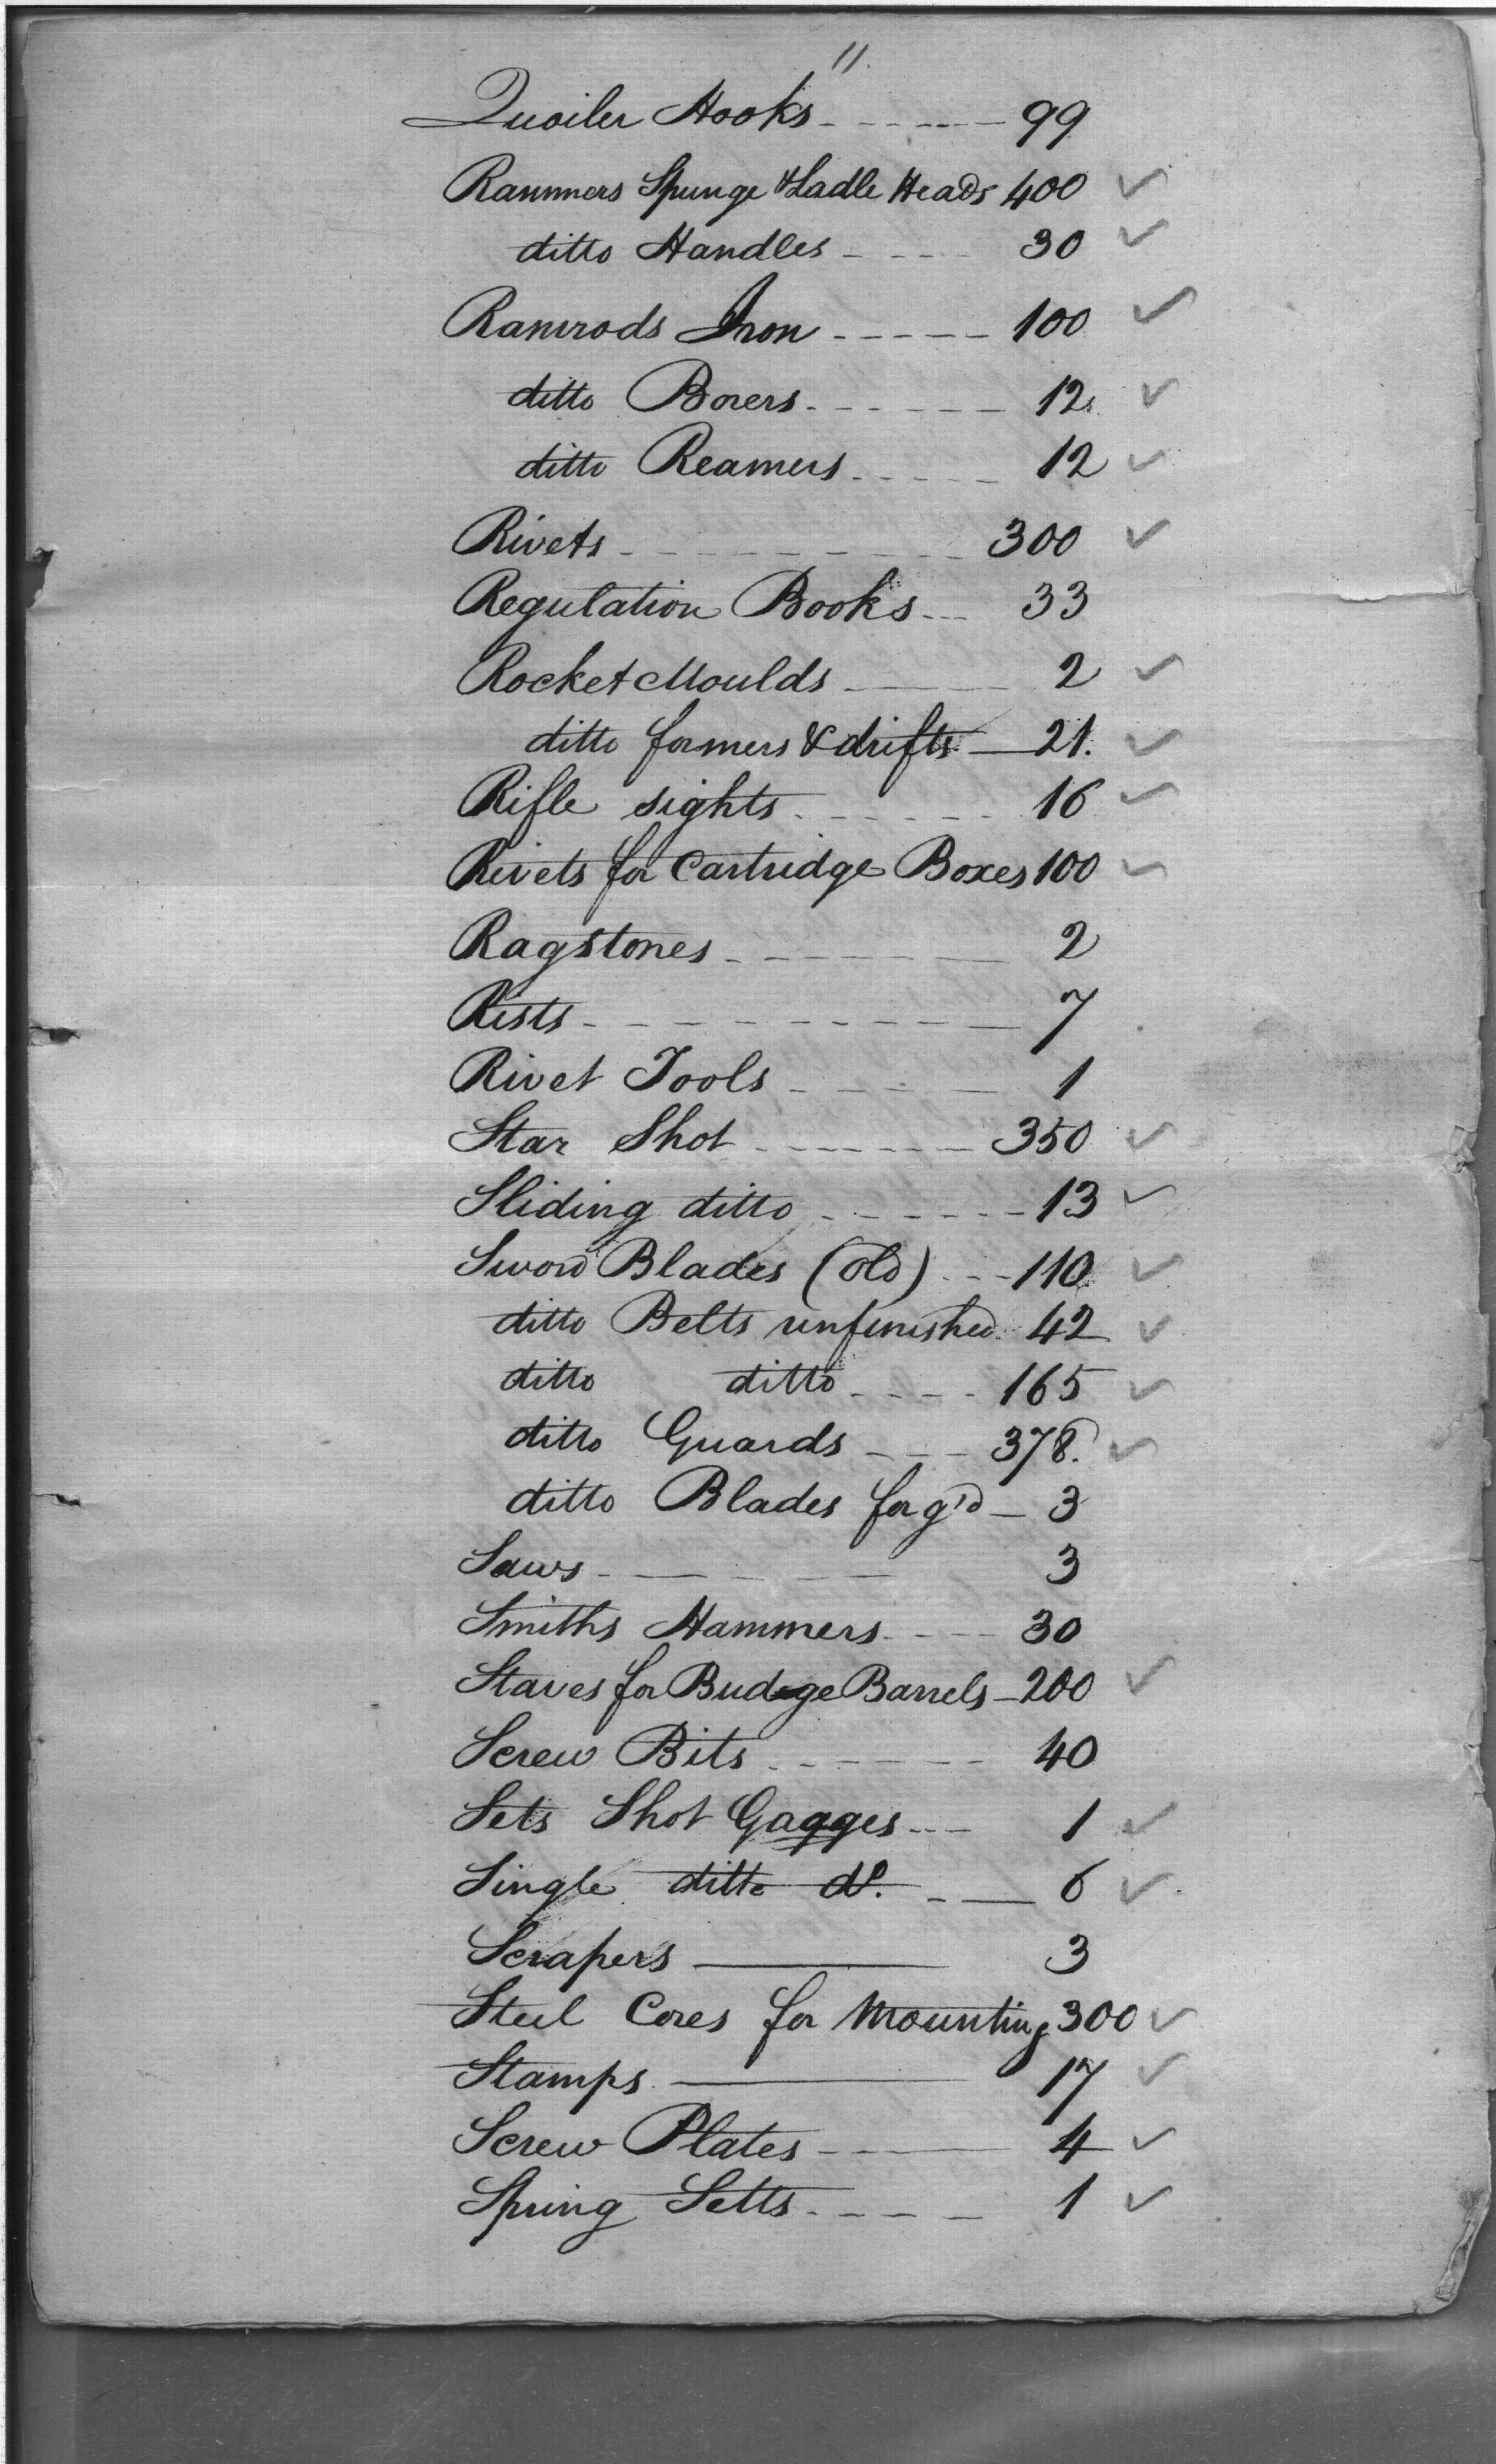 11.
Quoiler Hooks - - - - - 99
Rammers Spunge & Ladle Heads 400 ✓
ditto Handles - - - - 30 ✓
Ramrods Iron - - - - - 100 ✓
ditto Borers - - - - - - 12 ✓
ditto Reamers - - - - - 12 ✓
Rivets - - - - - - - - - 300 ✓
Regulation Books - - - 33
Rocket Moulds - - - 2 ✓
ditto formers & drifts - 21. ✓
Rifle sights - - - - - - 16 ✓
Rivets for Cartridge Boxes 100 ✓
Ragstones - - - - - - 2
Rists - - - - - - - - - 7
Rivet Tools - - - - - 1
Star Shot - - - - - - 350 ✓
Sliding ditto - - - - - - 13 ✓
Sword Blades (old) - - - 110 ✓
ditto Belts unfinished - 42 ✓
ditto ditto - - - - 165 ✓
ditto Guards - - - 378. ✓
ditto Blades forg'd - 3
Saws - - - - - - 3
Smiths Hammers - - - - 30
Staves for Budge Barrels - 200 ✓
Screw Bits - - - - - - 40
Sets Shot Gagges - - - 1 ✓
Single ditto do. - - 6 ✓
Scrapers - 3
Steel Cores for Mounting 300 ✓
Stamps - 17 ✓
Screw Plates - - - 4 ✓
Spring Setts - - - - 1 ✓